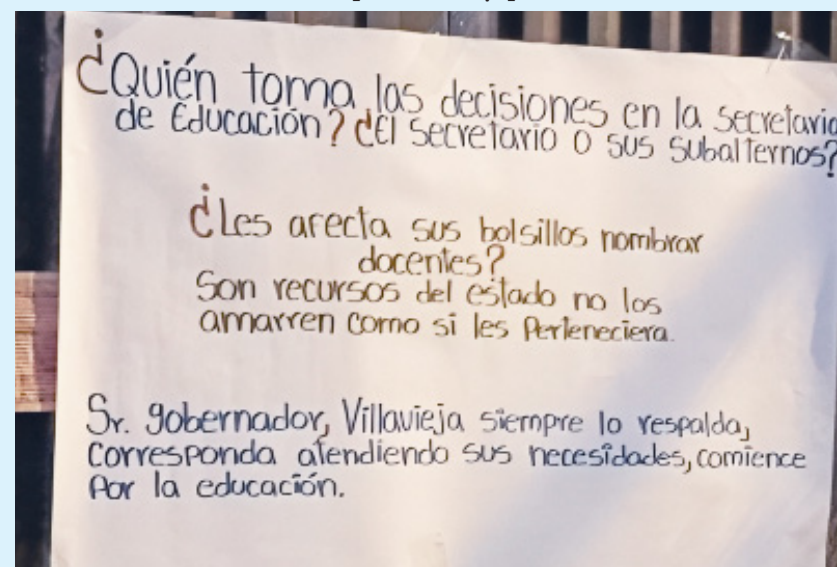 ¿Quién toma las decisiones en la secretaria
de Educación? ¿El secretario o sus subalternos?
¿Les afecta sus bolsillos nombrar
docentes?
Son recursos del estado no los
amarren como si les Perteneciera.
Sr. gobernador, Villavieja siempre lo respalda,
corresponda atendiendo sus necesidades, comience
por la educación.